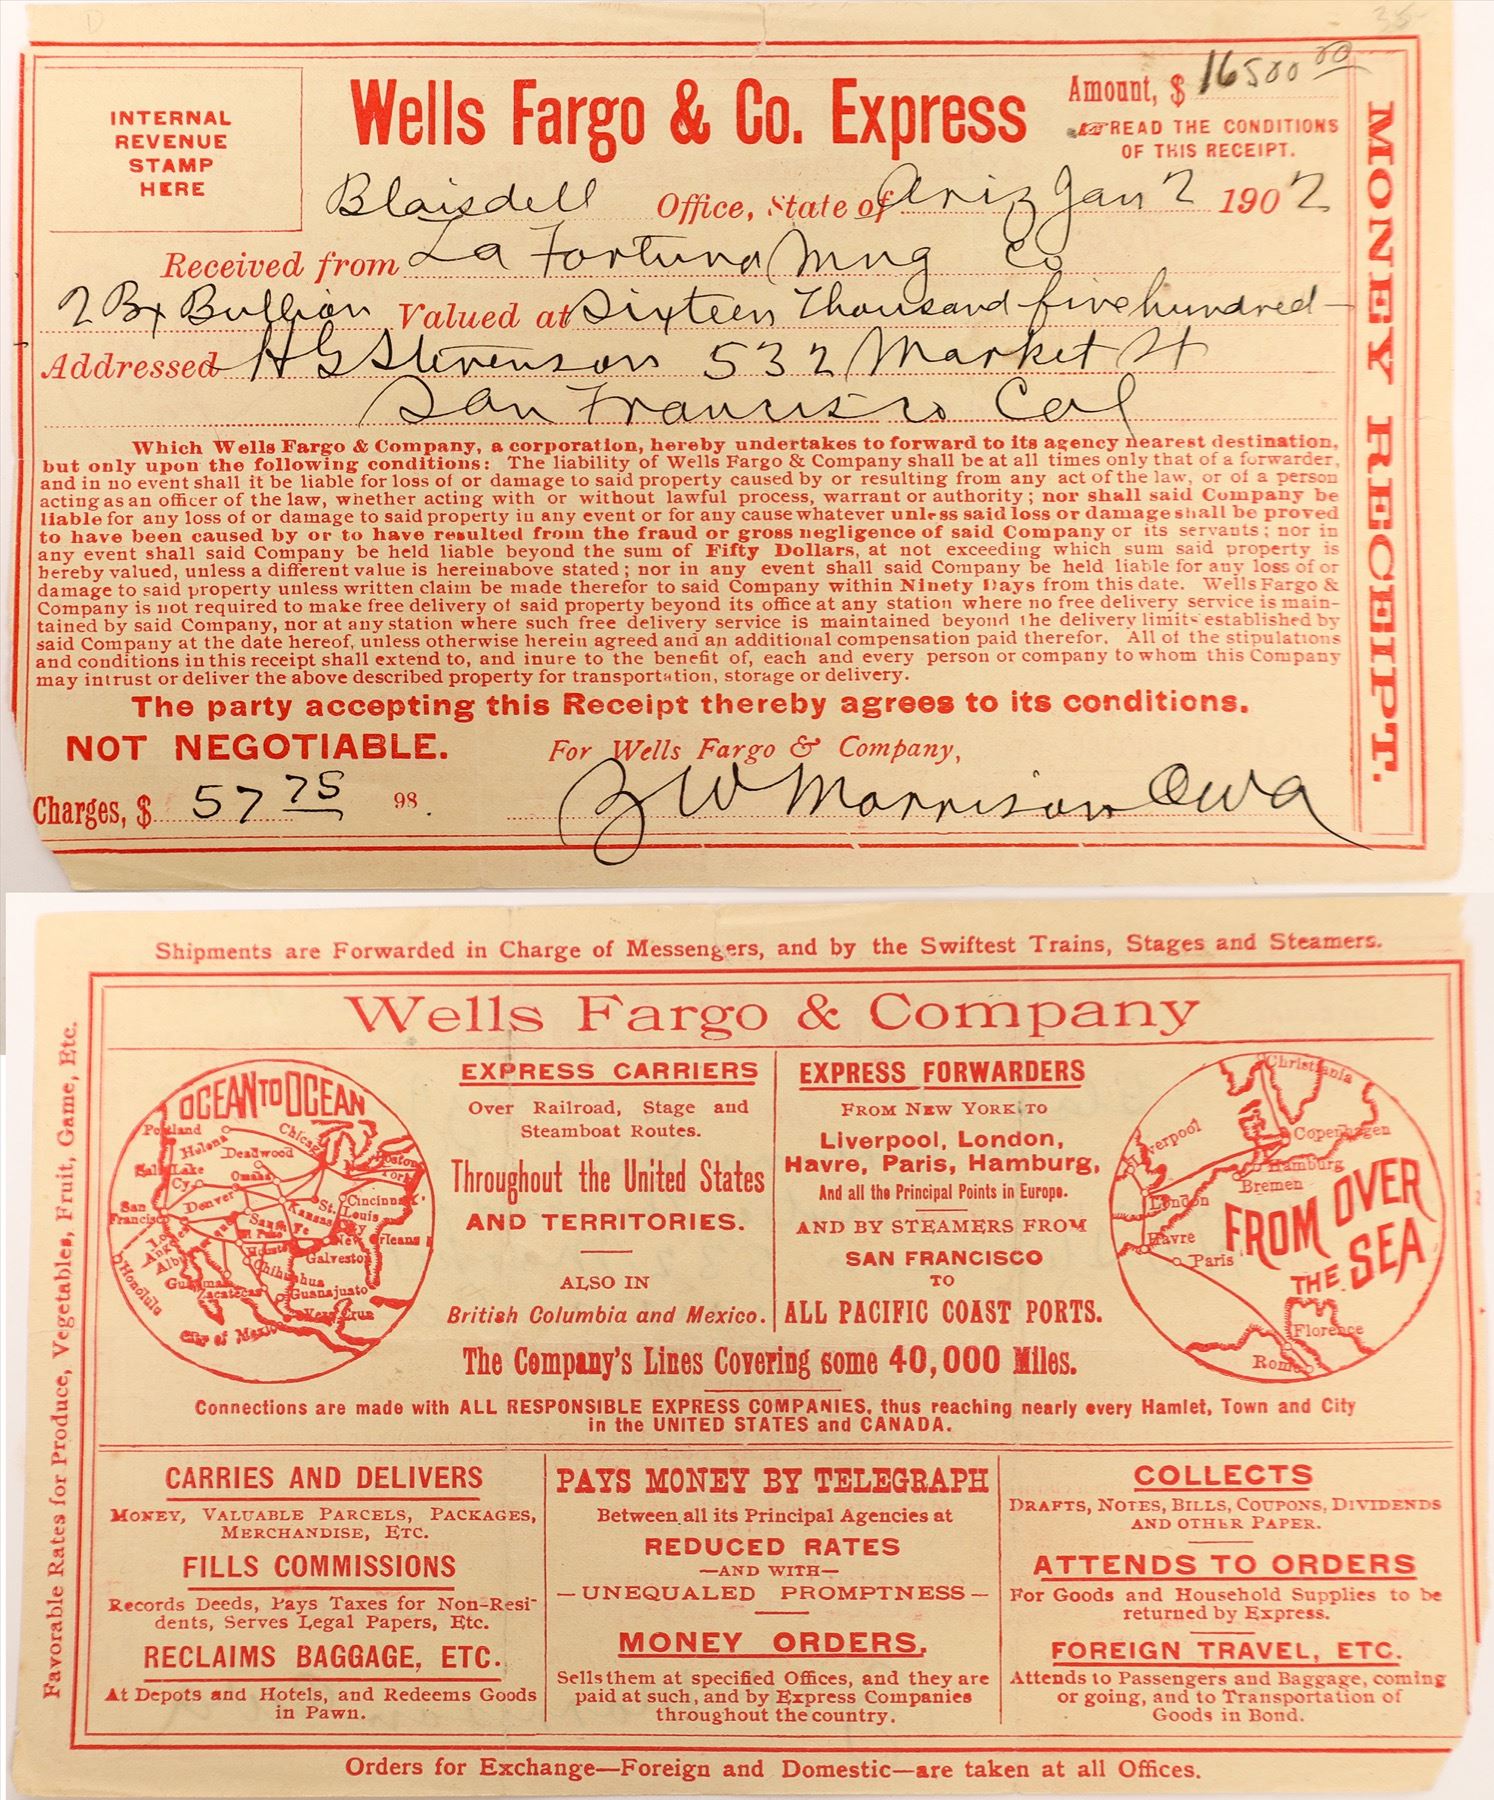 INTERNAL
REVENUE
STAMP
HERE
Wells Fargo & Co. Express
Amount, $ 16500 00
READ THE CONDITIONS
OF THIS RECEIPT.
Blaisdell Office, State of Ariz Jan 2 1902
Received from La Fortuna Mng Co
2 Bx Bullion Valued at Sixteen Thousand five hundred
Addressed H G Stevenson 532 Market St
San Francisco Cal
Which Wells Fargo & Company, a corporation, hereby undertakes to forward to its agency nearest destination,
but only upon the following conditions: The liability of Wells Fargo & Company shall be at all times only that of a forwarder,
and in no event shall it be liable for loss of or damage to said property caused by or resulting from any act of the law, or of a person
acting as an officer of the law, whether acting with or without lawful process, warrant or authority; nor shall said Company be
liable for any loss of or damage to said property in any event or for any cause whatever unless said loss or damage shall be proved
to have been caused by or to have resulted from the fraud or gross negligence of said Company or its servants; nor in
any event shall said Company be held liable beyond the sum of Fifty Dollars, at not exceeding which sum said property is
hereby valued, unless a different value is hereinabove stated; nor in any event shall said Company be held liable for any loss of or
damage to said property unless written claim be made therefor to said Company within Ninety Days from this date. Wells Fargo &
Company is not required to make free delivery of said property beyond its office at any station where no free delivery service is main-
tained by said Company, nor at any station where such free delivery service is maintained beyond the delivery limits established by
said Company at the date hereof, unless otherwise herein agreed and an additional compensation paid therefor. All of the stipulations
and conditions in this receipt shall extend to, and inure to the benefit of, each and every person or company to whom this Company
may intrust or deliver the above described property for transportation, storage or delivery.
The party accepting this Receipt thereby agrees to its conditions.
NOT NEGOTIABLE.
For Wells Fargo & Company,
Charges, $ 57 75 98.
W Morrison
MONEY RECEIPT.
Shipments are Forwarded in Charge of Messengers, and by the Swiftest Trains, Stages and Steamers.
Favorable Rates for Produce, Vegetables, Fruit, Game, Etc.
Wells Fargo & Company
OCEAN TO OCEAN
Portland
Helena
Deadwood
Chicago
Boston
Salt Lake Cy.
Omaha
San Francisco
Denver
Kansas City
St. Louis
Cincinnati
Santa Fe
Los Angeles
El Paso
New Orleans
Houston
Galveston
Chihuahua
Honolulu
Guaymas
Zacatecas
Guanajuato
Vera Cruz
City of Mexico
EXPRESS CARRIERS
Over Railroad, Stage and
Steamboat Routes.
Throughout the United States
AND TERRITORIES.
ALSO IN
British Columbia and Mexico.
EXPRESS FORWARDERS
FROM NEW YORK TO
Liverpool, London,
Havre, Paris, Hamburg,
And all the Principal Points in Europe.
AND BY STEAMERS FROM
SAN FRANCISCO
TO
ALL PACIFIC COAST PORTS.
FROM OVER THE SEA
Christiania
Copenhagen
Liverpool
Hamburg
Bremen
London
Havre
Paris
Florence
Rome
The Company's Lines Covering some 40,000 Miles.
Connections are made with ALL RESPONSIBLE EXPRESS COMPANIES, thus reaching nearly every Hamlet, Town and City
in the UNITED STATES and CANADA.
CARRIES AND DELIVERS
MONEY, VALUABLE PARCELS, PACKAGES,
MERCHANDISE, ETC.
FILLS COMMISSIONS
Records Deeds, Pays Taxes for Non-Resi-
dents, Serves Legal Papers, Etc.
RECLAIMS BAGGAGE, ETC.
At Depots and Hotels, and Redeems Goods
in Pawn.
PAYS MONEY BY TELEGRAPH
Between all its Principal Agencies at
REDUCED RATES
—AND WITH—
—UNEQUALED PROMPTNESS—
MONEY ORDERS.
Sells them at specified Offices, and they are
paid at such, and by Express Companies
throughout the country.
COLLECTS
DRAFTS, NOTES, BILLS, COUPONS, DIVIDENDS
AND OTHER PAPER.
ATTENDS TO ORDERS
For Goods and Household Supplies to be
returned by Express.
FOREIGN TRAVEL, ETC.
Attends to Passengers and Baggage, coming
or going, and to Transportation of
Goods in Bond.
Orders for Exchange—Foreign and Domestic—are taken at all Offices.